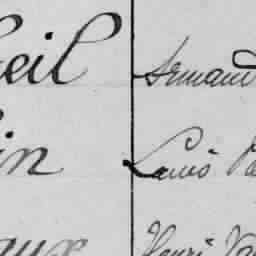 eil Armand
in Louis
aux Henri